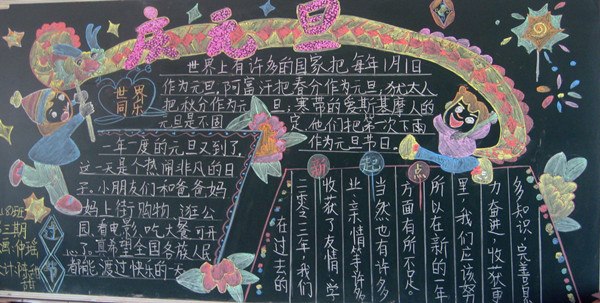 庆元旦
世界
同乐
世界上有许多的国家把每年1月1
作为元旦,阿富汗把春分作为元旦,犹太人
把秋分作为元旦;寒带的爱斯基摩人的
元旦是不固定,他们把第一次下雨
作为元旦节日。
一年一度的元旦又到了,
这一天是个热闹非凡的日
子。小朋友们和爸爸妈
妈上街购物,逛公
园,看电影、吃大餐可开
心了。真希望全国各族人民
都能渡过快乐的一天
新起点
在过去的
年,我们
收获了友情、学
业、亲情等许多
当然也有许多
方面有所不足。
所以在新的一年
里,我们应该努
力奋进,收获更
多知识,完善自
班
三期
画:仲瑶
计: